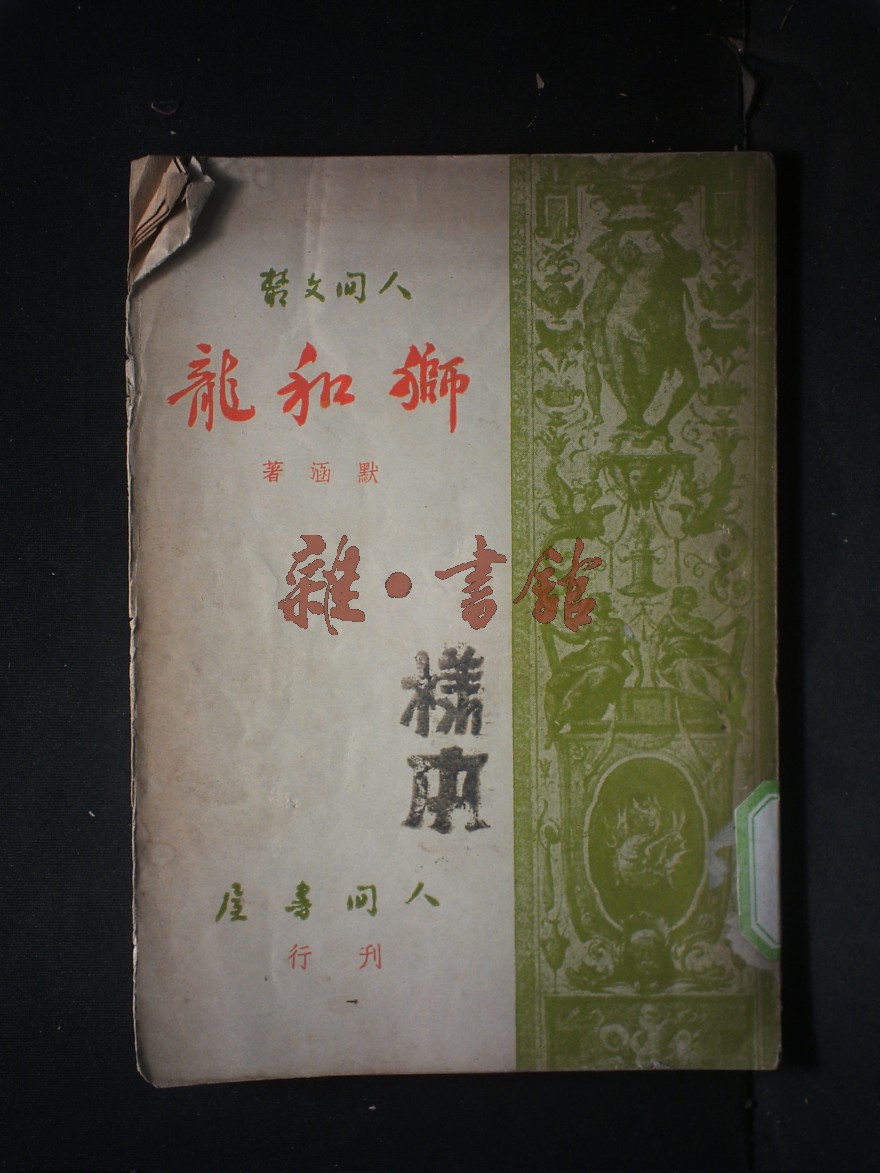 人间文丛
獅和龍
默涵著
雜·書館
樣本
人间書屋
刋行